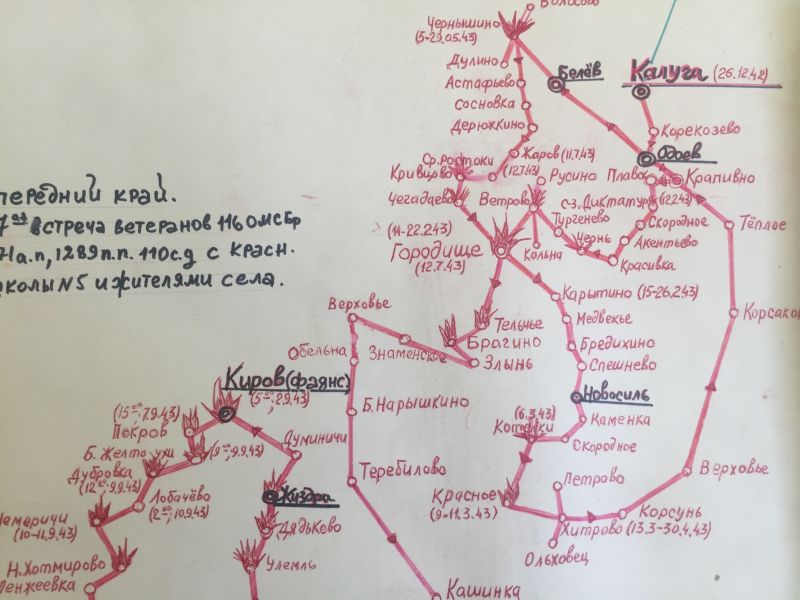 Волосово
Чернышино
(5-29.05.43)
Дулино
Белёв
Калуга (26.12.42)
Астафьево
Сосновка
Дерюжкино
Карекозево
Одоев
Ср. Ростоки
Жаров (11.7.43)
Кривцово
(12.7.43)
Русино
Плавск
Крапивно
Чегадаево
Ветрово
с-з. Диктатура
(12.2.43)
передний край.
7ая встреча ветеранов 116 ОМСБр
71 а.п, 1289 п.п. 110 с.д с Красн.
школы N5 и жителями села.
(14-22.2.43)
Тургенево
Скородное
Тёплое
Городище
(12.7.43)
Чернь
Акентьево
Кольна
Красивка
Карытино (15-26.2.43)
Верховье
Медвежье
Корсаков
Тельчье
Обельна
Знаменское
Брагино
Бредихино
Злынь
Спешнево
Киров (фаянс)
(5 00; 2.9.43)
Новосиль
Б. Нарышкино
(15 00; 7.9.43)
Покров
(6.3.43)
Каменка
Котелки
Скородное
Думиничи
Б. Желтоухи
(9 00; 9.9.43)
Дубровка
(12 00-9.9.43)
Теребилово
Петрово
Верховье
Лобачёво
(2 00; 10.9.43)
Жиздра
Красное
(9-11.3.43)
Корсунь
Немеричи
(10-11.9.43)
Дядьково
Хитрово (13.3-30.4.43)
Ольховец
Н. Хотмирово
Улемль
Кашинка